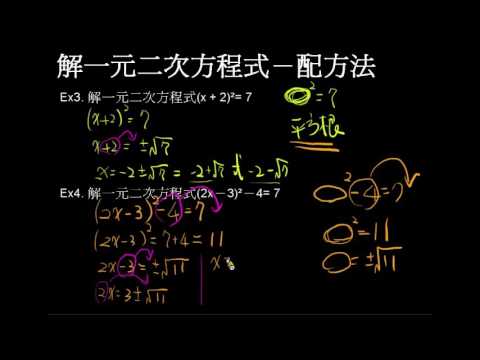 解一元二次方程式－配方法
Ex3. 解一元二次方程式(x + 2)²= 7
(x+2)²=7
x+2=±√7
x=-2±√7=-2+√7 或 -2-√7
○²=7
平方根
Ex4. 解一元二次方程式(2x－3)²－4= 7
(2x-3)²-4=7
(2x-3)²=7+4=11
2x-3=±√11
2x=3±√11
x
○²-4=7
○²=11
○=±√11